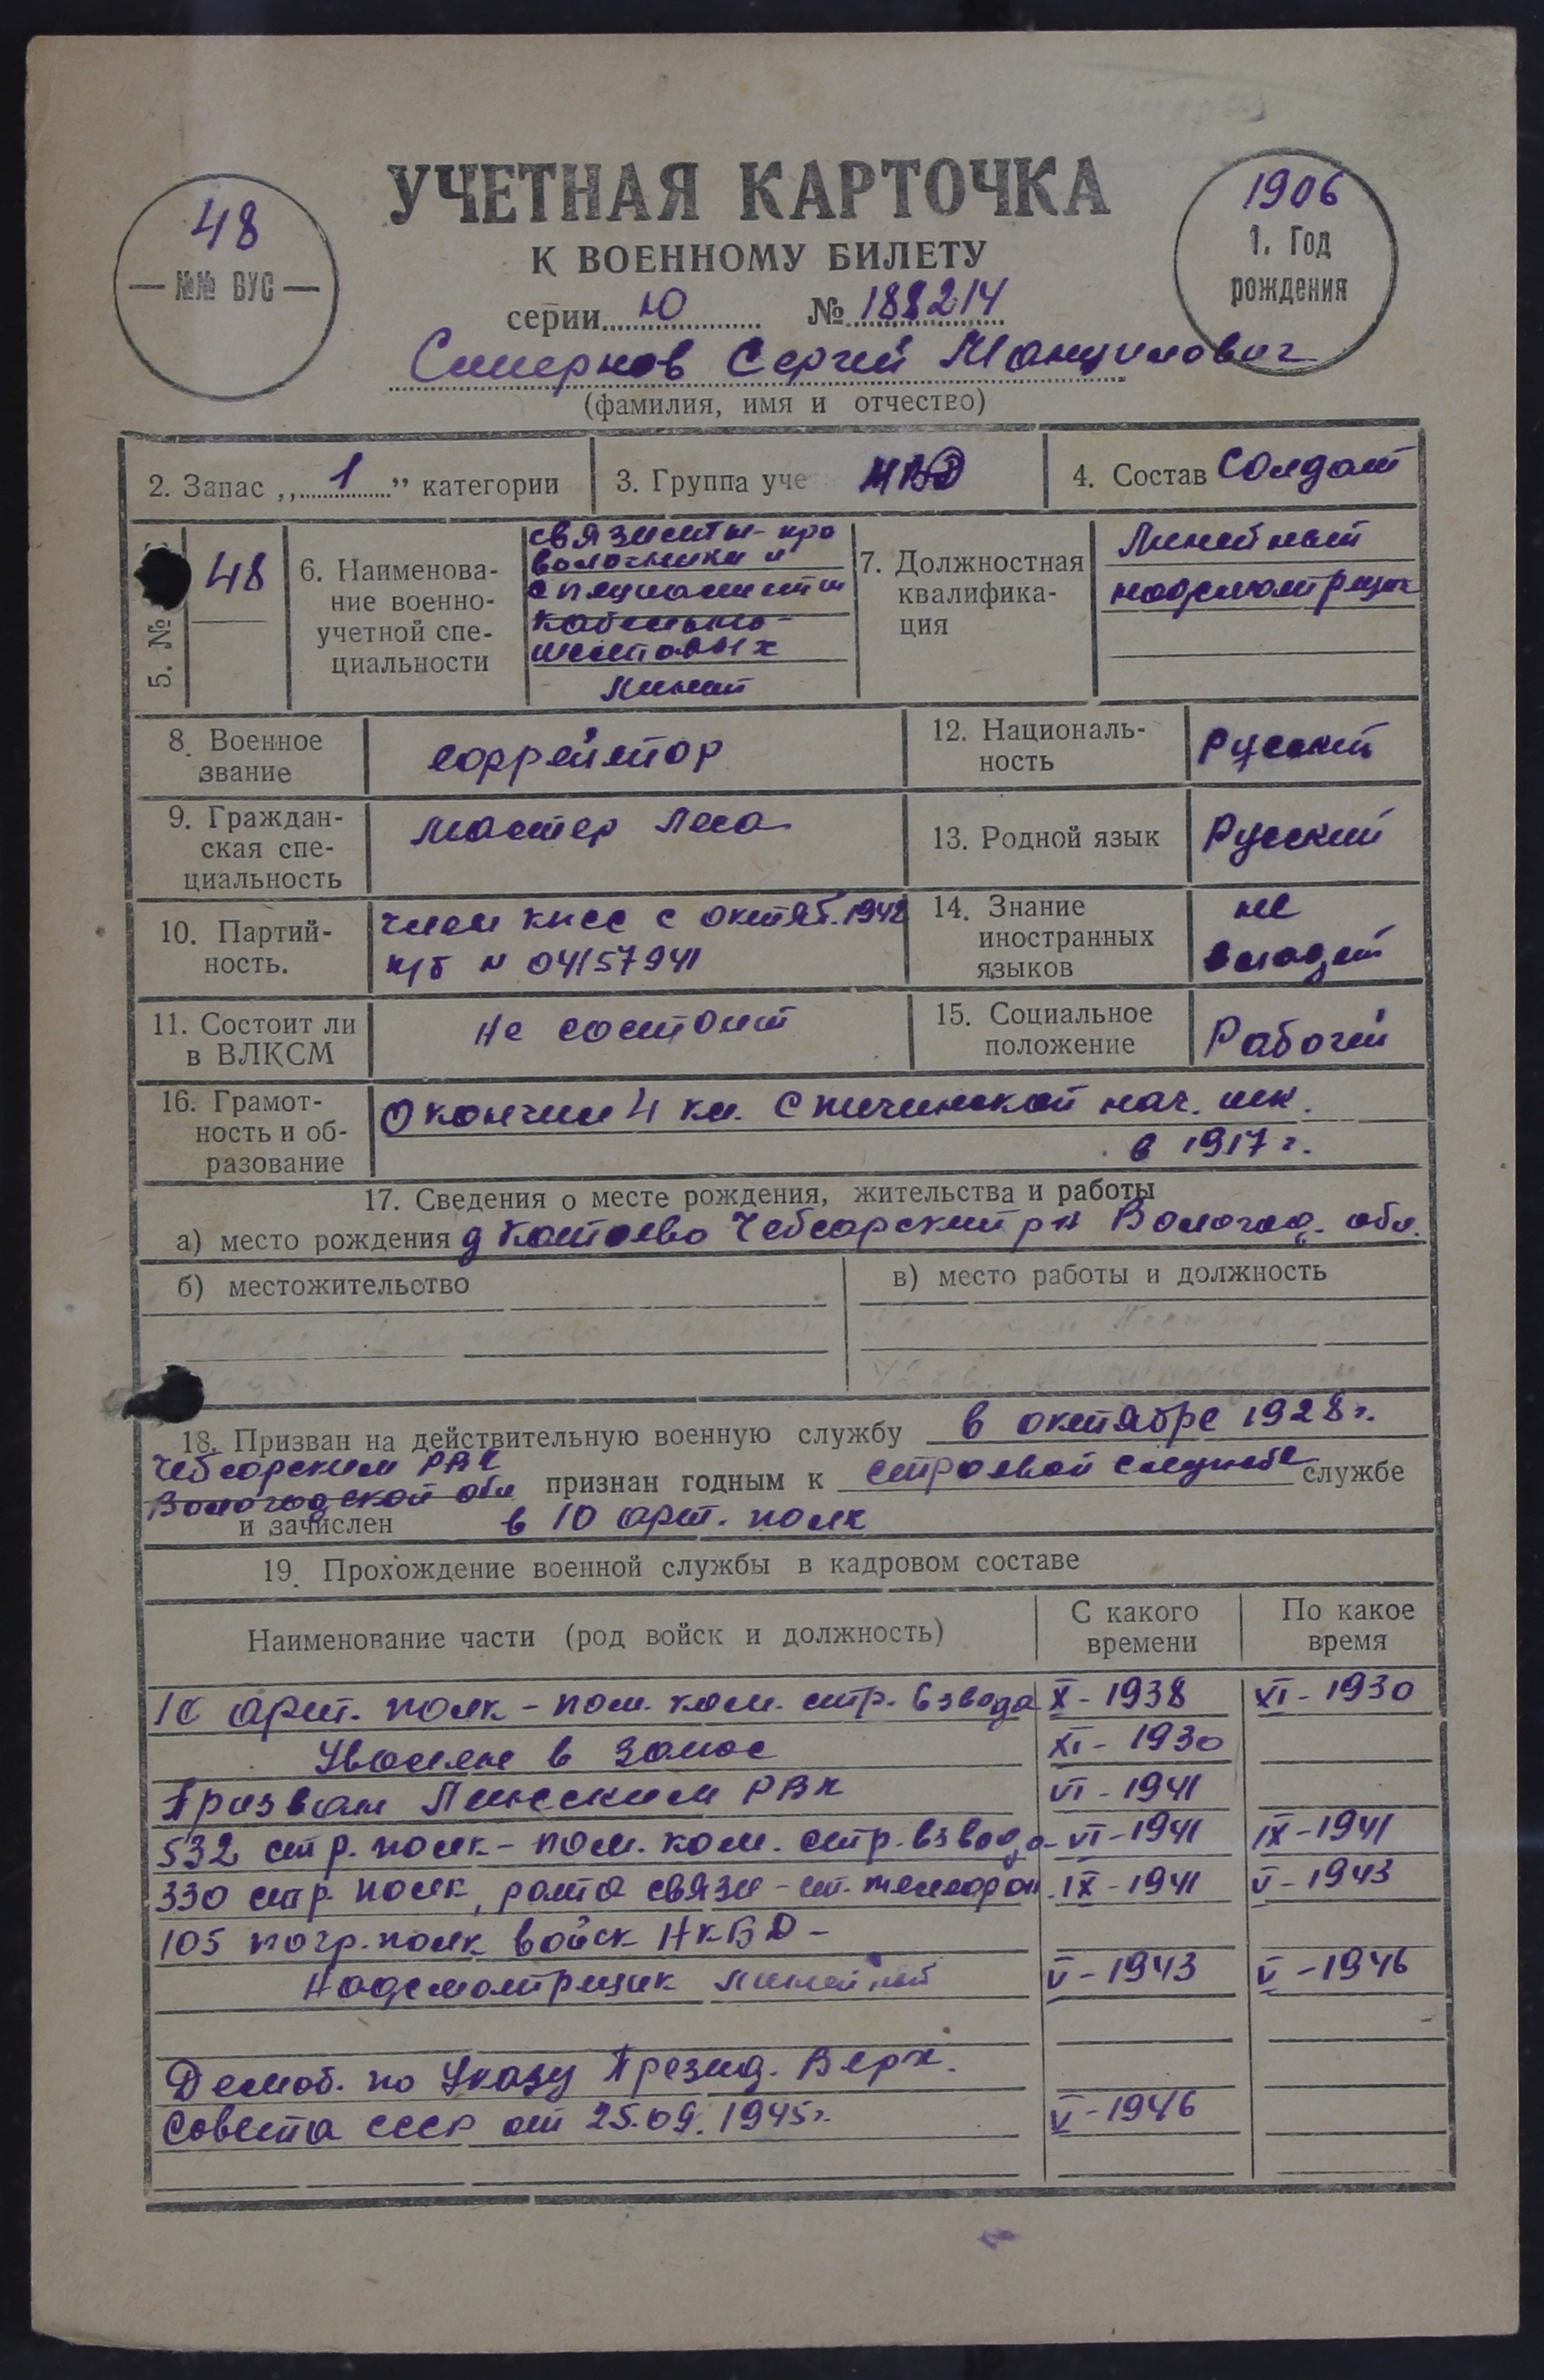 УЧЕТНАЯ КАРТОЧКА
К ВОЕННОМУ БИЛЕТУ
48
№№ ВУС
1906
1. Год
рождения
серии Ю № 188214
Смирнов Сергей
(фамилия, имя и отчество)
2. Запас „1” категории
3. Группа уче МВД
4. Состав Солдат
5. №
48
6. Наименова-
ние военно-
учетной спе-
циальности
связисты-про
волочники и
специалисты
кабельно-
шестовых
линий
7. Должностная
квалифика-
ция
Линейный
надсмотрщик
8. Военное
звание
ефрейтор
12. Националь-
ность
Русский
9. Граждан-
ская спе-
циальность
мастер леса
13. Родной язык
Русский
10. Партий-
ность.
член КПСС с октяб. 1942
п/б № 04157941
14. Знание
иностранных
языков
не
владеет
11. Состоит ли
в ВЛКСМ
не состоит
15. Социальное
положение
Рабочий
16. Грамот-
ность и об-
разование
Окончил 4 кл. нач. шк.
в 1917 г.
17. Сведения о месте рождения, жительства и работы
а) место рождения д Чебсарский р-н Вологод. обл.
б) местожительство
в) место работы и должность
18. Призван на действительную военную службу в октябре 1928 г.
Чебсарским РВК
Вологодской обл признан годным к строевой службе службе
и зачислен в 10 арт. полк
19. Прохождение военной службы в кадровом составе
Наименование части (род войск и должность)
С какого
времени
По какое
время
10 арт. полк - пом. ком. стр. взвода X - 1938 XI - 1930
Уволен в запас XI - 1930
Призван РВК VI - 1941
532 стр. полк - пом. ком. стр. взвода VI - 1941 IX - 1941
330 стр. полк, рота связи - ст. телефон. IX - 1941 V - 1943
105 погр. полк войск НКВД -
Надсмотрщик линейный V - 1943 V - 1946
Демоб. по Указу Презид. Верх.
Совета СССР от 25.09.1945 г. V - 1946